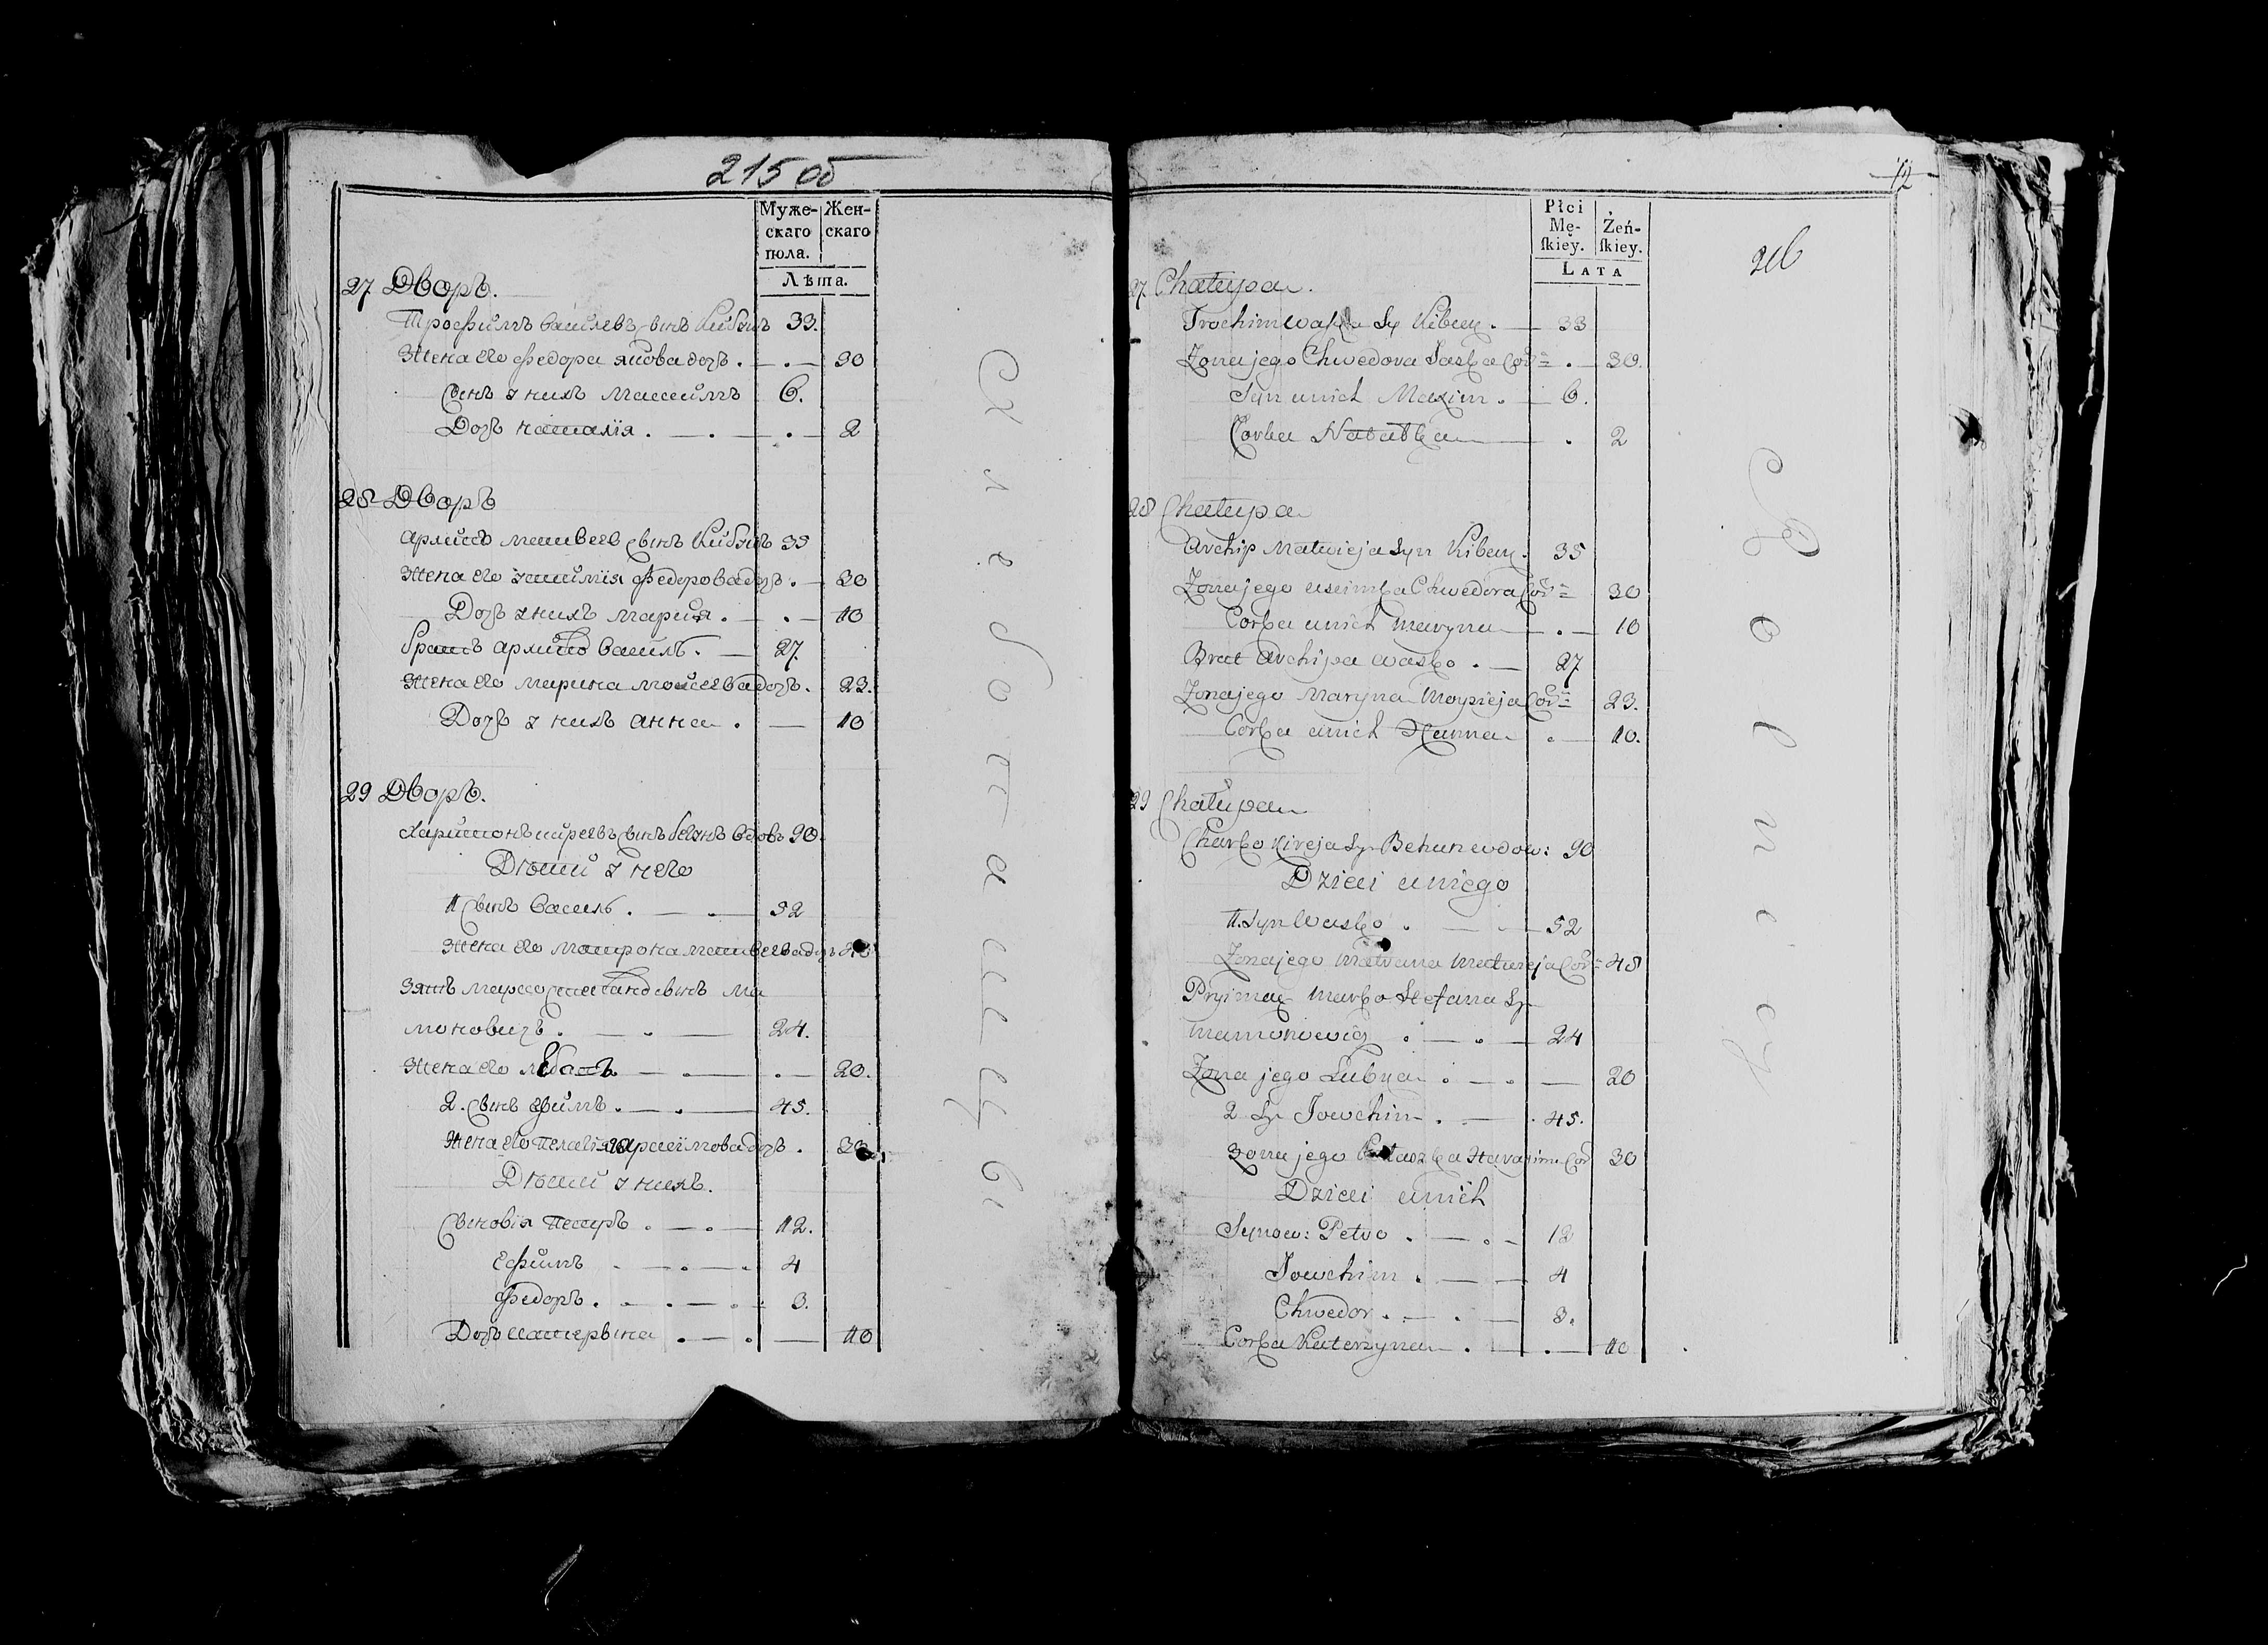 215 об
Муже-
скаго
пола.
Жен-
скаго
Лѣта.
27 Дворъ.
Трофимъ василевъ сынъ Кибукъ 33.
Жена его федора яцова дочь . — . — 30
Сынъ з нихъ максимъ 6.
Дочь наталія . — . — . — 2
28 Дворъ
Архипъ матвеевъ сынъ Кибукъ 35
Жена его федорова дочь . — 30
Дочь з нихъ мария . — . — 10
братъ архипа василь . — 27.
Жена его марина моисеева дочь . 23.
Дочь з нихъ анна . — 10
29 Дворъ.
Харитонъ киреевъ сынъ бегунъ вдовъ 90.
Дѣти з него
1 сынъ василь . — . — 52
Жена его матрона матвеева дочь
Зять марко сынъ ма
моновичъ . — . — 24.
Жена его — . — . — 20.
2. сынъ ефимъ . — . — 45.
Жена его дочь .
Дѣти з нихъ.
Сыновія петръ . — . — 12.
Ефимъ . — . — . 4
федоръ . — . — . — 3.
Дочь катерына . — . — 10
Хлеботацы
12
Płci
Mę-
ſkiey.
Żeń-
ſkiey.
LATA
216
27 Chałupa.
Trochim Waśka Sy Kibuk . — 33
Zona jego Chwedora Jaśka Cor= . — 30.
Syn u nich Maxim . — 6.
Corka Natalka — . 2
28 Chałupa
Archip Matwieja Syn Kibuk . 35
Zona jego Chwedora Cor= 30
Corka u nich Maryna — . — 10
Brat Archipa Wasko . — 27
Zona jego Maryna Moysieja Cor= 23.
Corka u nich Hanna . — 10.
29 Chałupa
Charko Kireja Sy Behun wdow: 90
Dzieci u niego
1. Syn Wasko . — . — 52
Zona jego Matrona Matwieja Cor= 48
Pryimak Marko Stefana Sy
Mamonowicz . — . — 24
Zona jego Lubka . — . — 20
2 Sy Jowchim . — . 45.
Zona jego Harasima Cor 30
Dzieci u nich
Synow: Petro . — . — 12
Jowchim . — — 4
Chwedor . — . — 3.
Corka Katerzyna . — . — 10
Rolnicy